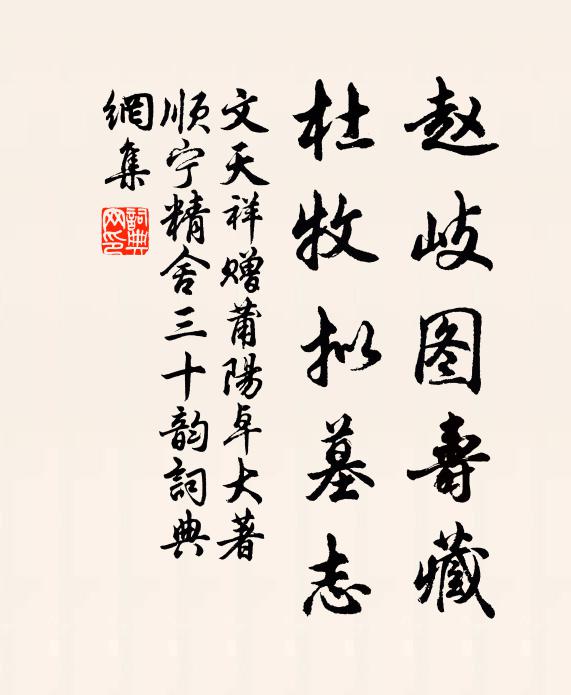 赵岐图壽藏
杜牧拟墓志
文天祥赠莆陽卓大著
顺宁精舍三十韵詞典
網集
詞典
网印